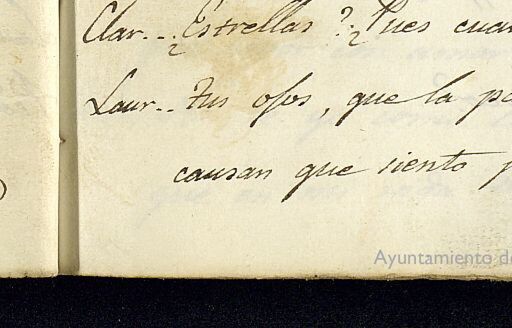 Clar... ¿Estrellas? ¿Pues cuan
Laur.. tus ojos, que la pe
causan que siento p
Ayuntamiento de